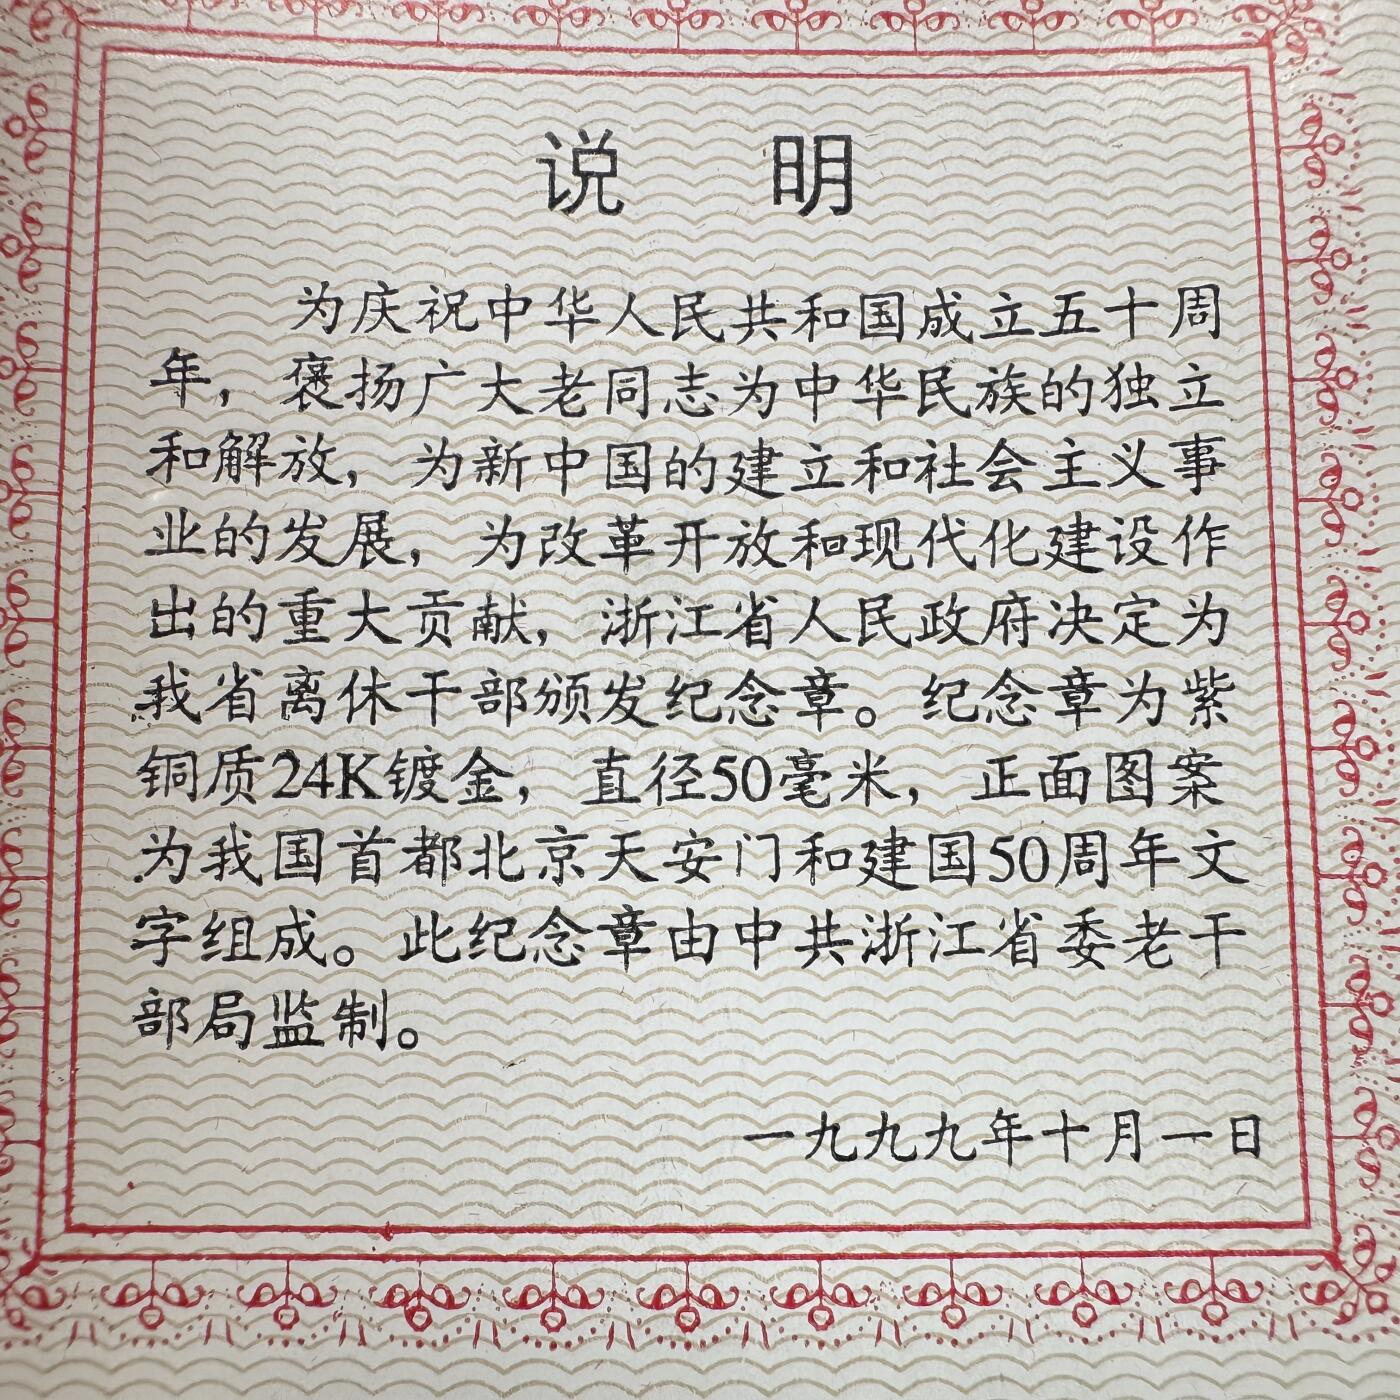 说 明
为庆祝中华人民共和国成立五十周
年，褒扬广大老同志为中华民族的独立
和解放，为新中国的建立和社会主义事
业的发展，为改革开放和现代化建设作
出的重大贡献，浙江省人民政府决定为
我省离休干部颁发纪念章。纪念章为紫
铜质24K镀金，直径50毫米，正面图案
为我国首都北京天安门和建国50周年文
字组成。此纪念章由中共浙江省委老干
部局监制。
一九九九年十月一日